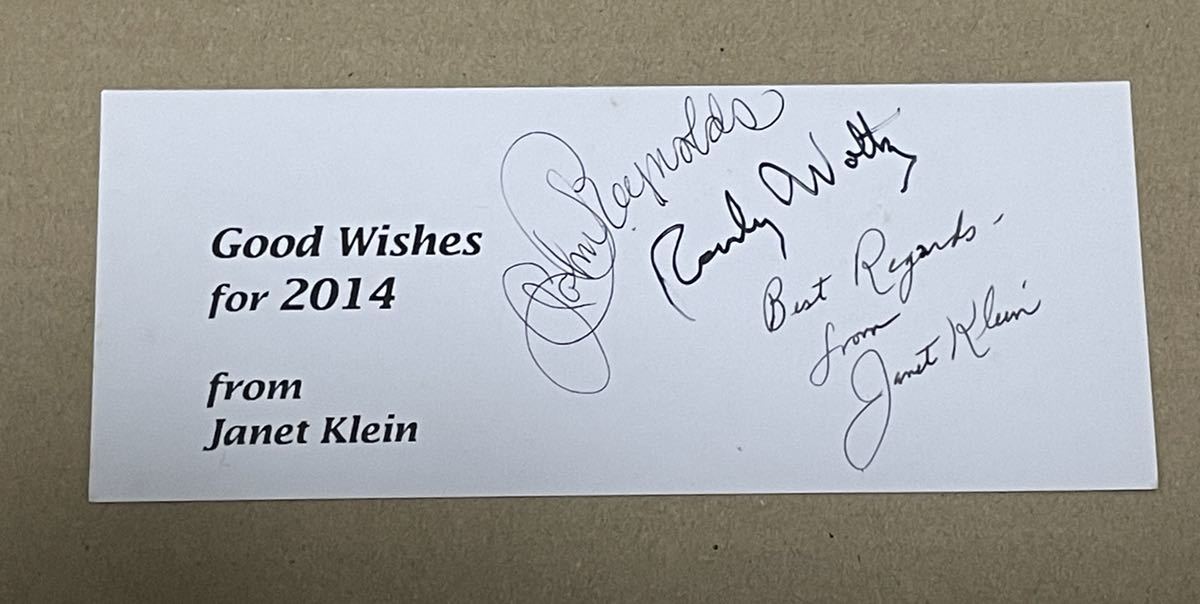 Good Wishes
for 2014
from
Janet Klein
John Reynolds
Randy Woltz
Best Regards -
from
Janet Klein